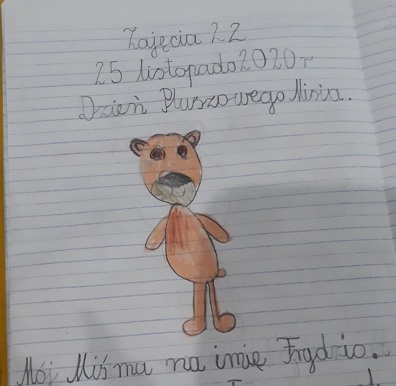 Zajęcia 22
25 listopada 2020 r
Dzień Pluszowego Misia.
Mój Miś ma na imię Frydzio.